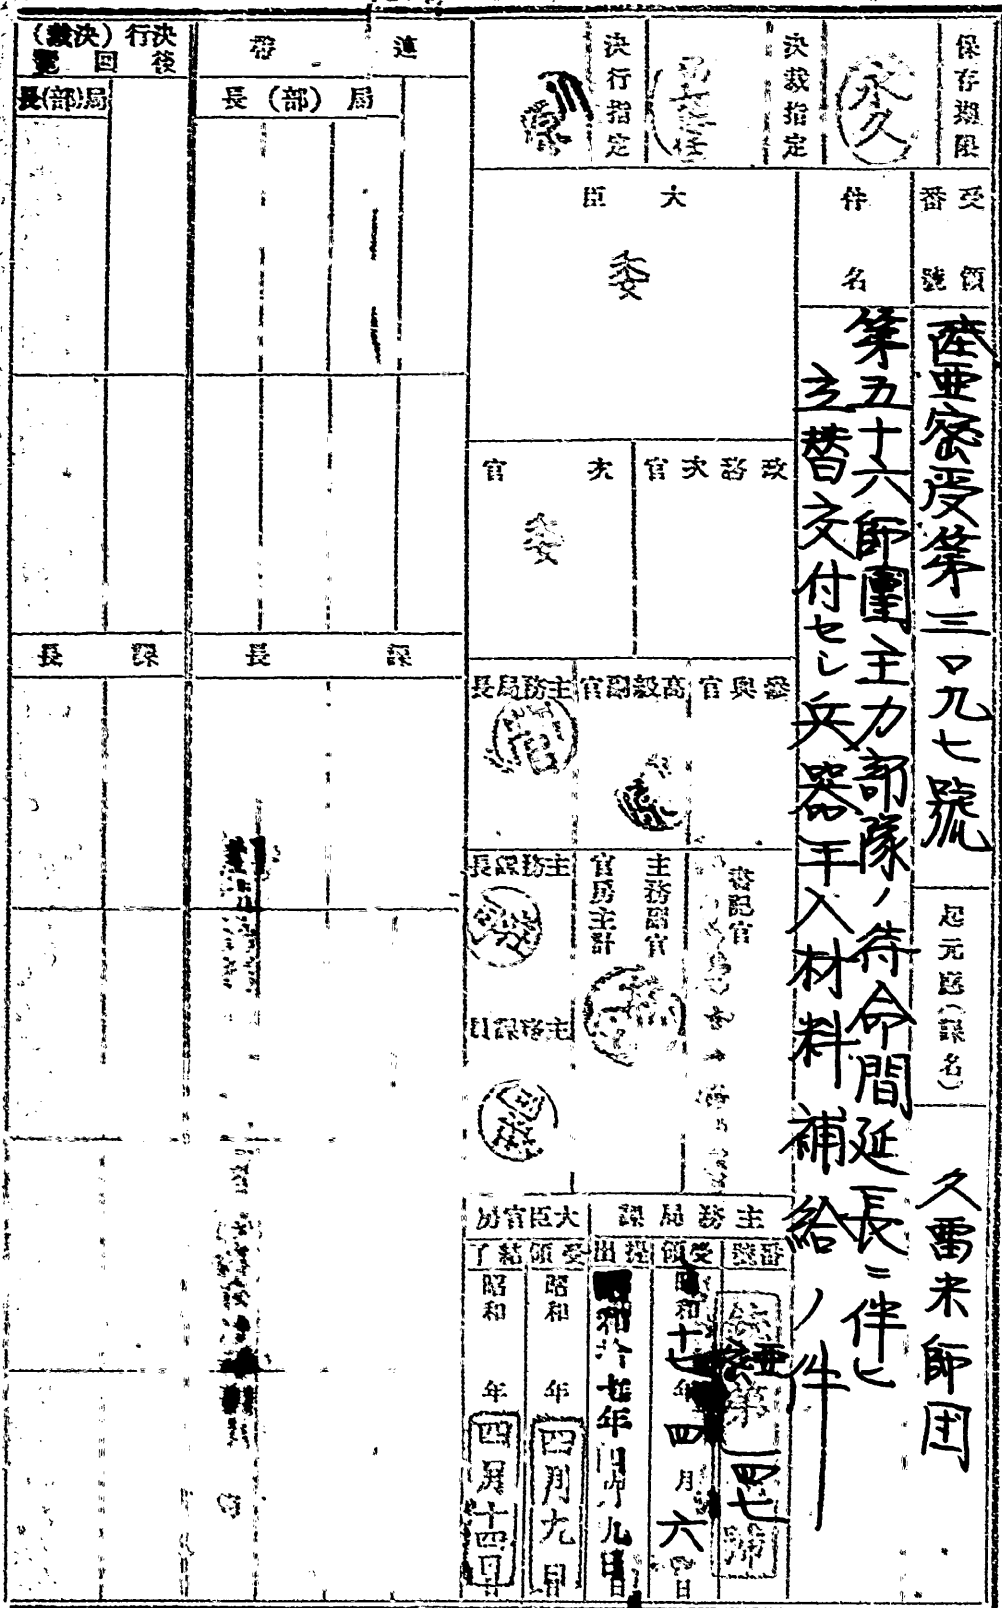 保存期限
永久
決裁指定
決行指定
受領番號
陸亜密受第三〇九七號
起元廳(課名)
久留米師団
件名
第五十六師團主力部隊ノ待命間延長ニ伴ヒ
立替交付セシ兵器手入材料補給ノ件
大臣
委
政務次官
次官
委
參與官
高級副官
主務局長
書記官
主務副官
官房主計
主務課長
主務課員
主務局課
番號
第一四七號
受領
昭和十七年四月六日
提出
昭和拾七年四月九日
大臣官房
受領
昭和 年四月九日
結了
昭和 年四月十四日
連帶
局(部)長
課長
決行(決裁)後回覽
局(部)長
課長